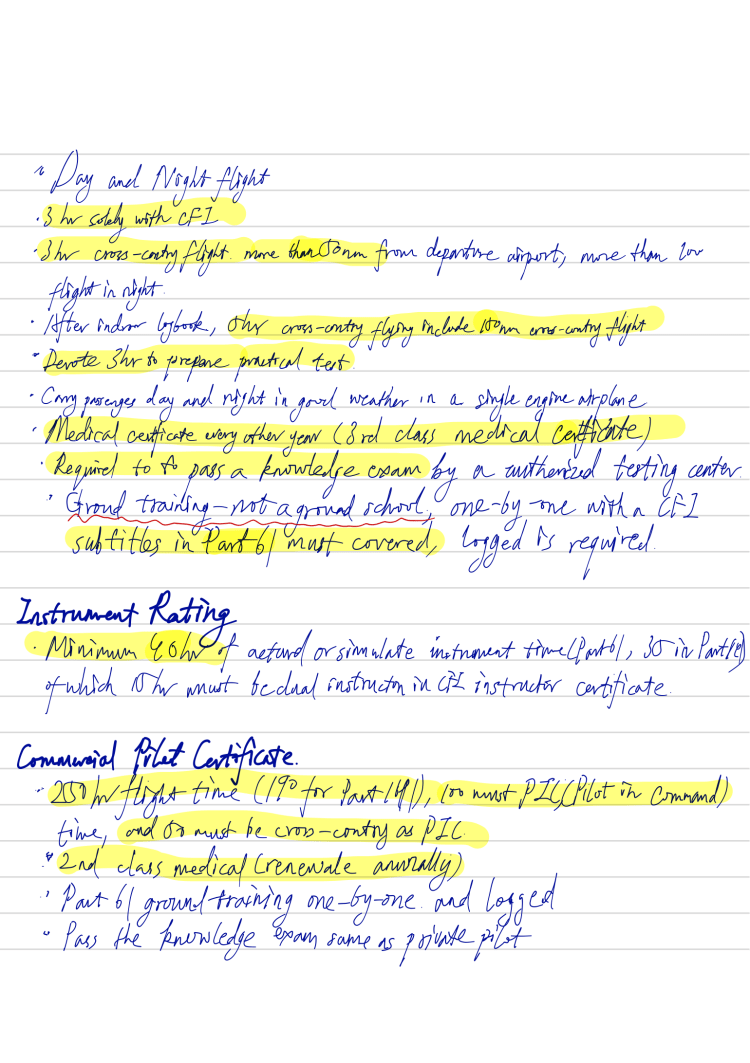 · Day and Night flight
· 3 hr solely with CFI
· 3hr cross-contry flight. more than 50nm from departure airport, more than
flight in night.
· After indoor logbook, 5hr cross-contry flying include 150nm cross-contry flight
· Devote 3hr to prepare practical test.
· Carry passenges day and night in good weather in a single engine airplane
· Medical certficate every other year (3rd class medical certficate)
· Required to to pass a knowledge exam by a authorized testing center.
· Ground training - not a ground school, one-by-one with a CFI
subtitles in Part 61 must covered, logged is required.
Instrument Rating
· Minimum 40hr of actural or simulate instrument time (Part 61, 35 in Part 141)
of which 15 hr must be dual instructon in CFI instructor certificate.
Commercial Pilot Certificate.
· 250 hr flight time (190 for Part 141), 100 must PIC (Pilot in Command)
time, and 50 must be cross-contry as PIC.
· 2nd class medical (renewale anurally)
· Part 61 ground training one-by-one. and logged
· Pass the knowledge exam same as private pilot